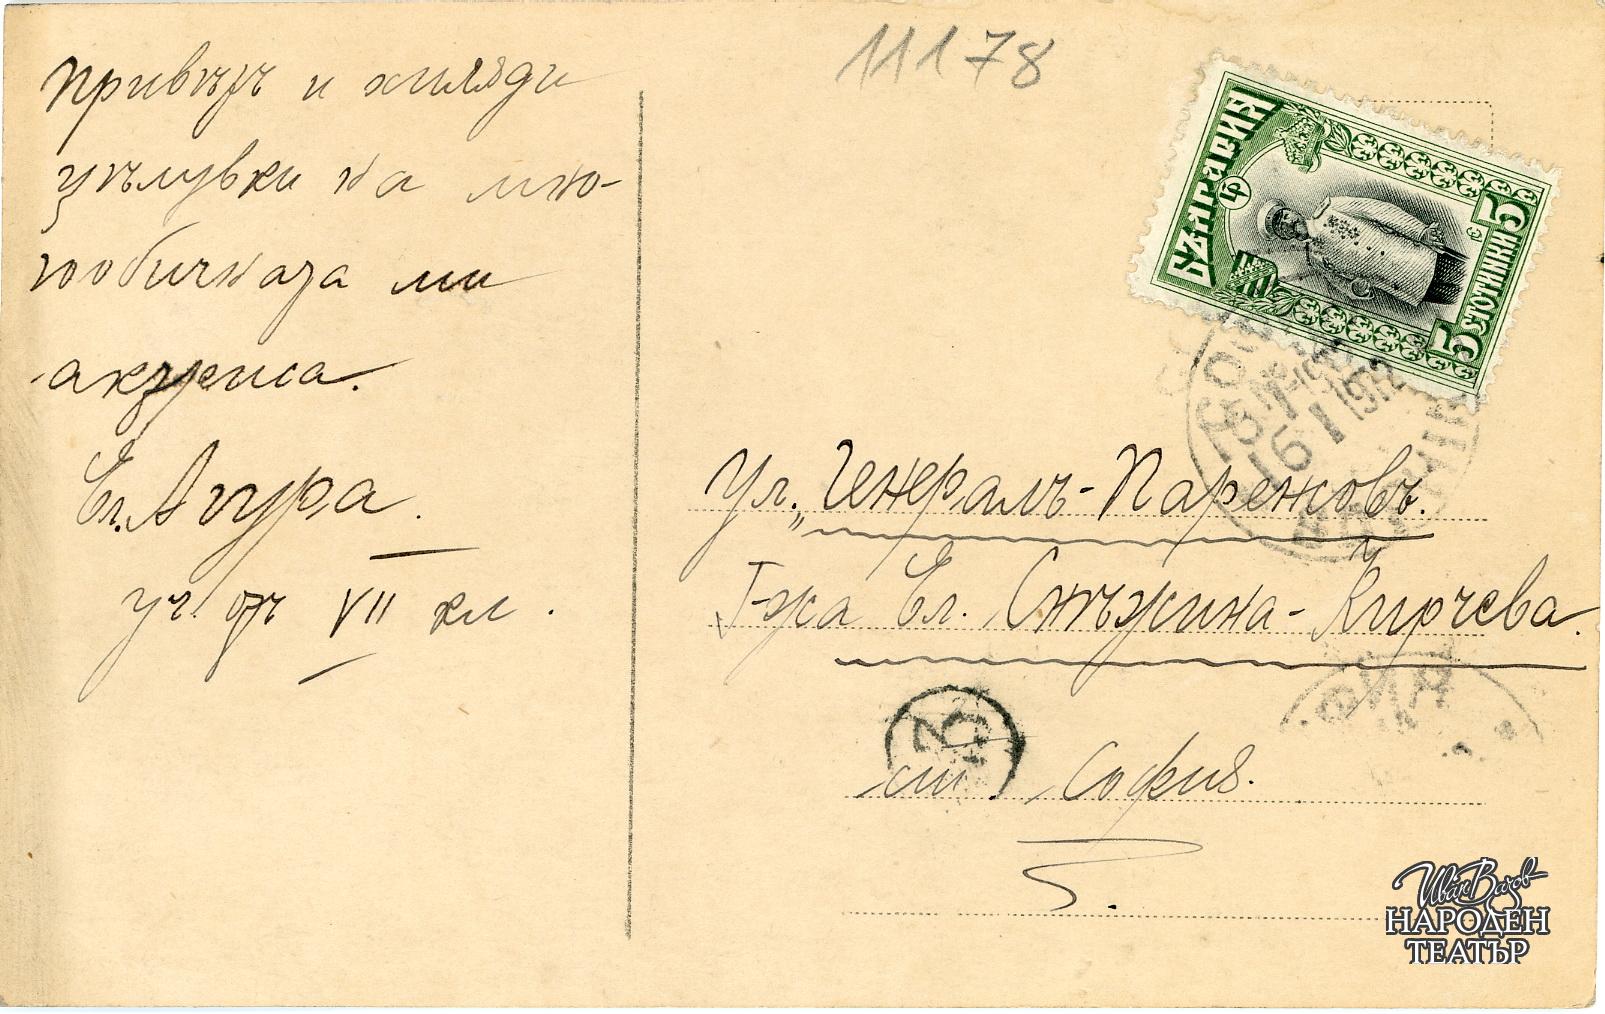 11178
Привѣтъ и хиляди
цѣлувки на лю-
бобичната ми
актриса.
Ел. Агура.
уч. отъ VII кл.
БЪЛГАРИЯ
5 СТОТИНКИ 5
16 I 1912
Ул. „Генералъ-Паренсовъ.
Г-жа Ел. Снѣжина-Кирчева.
ст. София.
Иван Вазов
НАРОДЕН
ТЕАТЪР